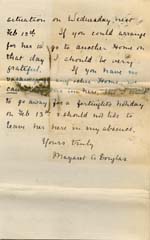 situation on Wednesday next
Feb 13th If you could arrange
for her to go to another Home on
that day I should be very
grateful. If you have no
to go away for a fortnight's holiday
on Feb 13th & should not like to
leave her here in my absence.
Yours truly
Margaret A Douglas